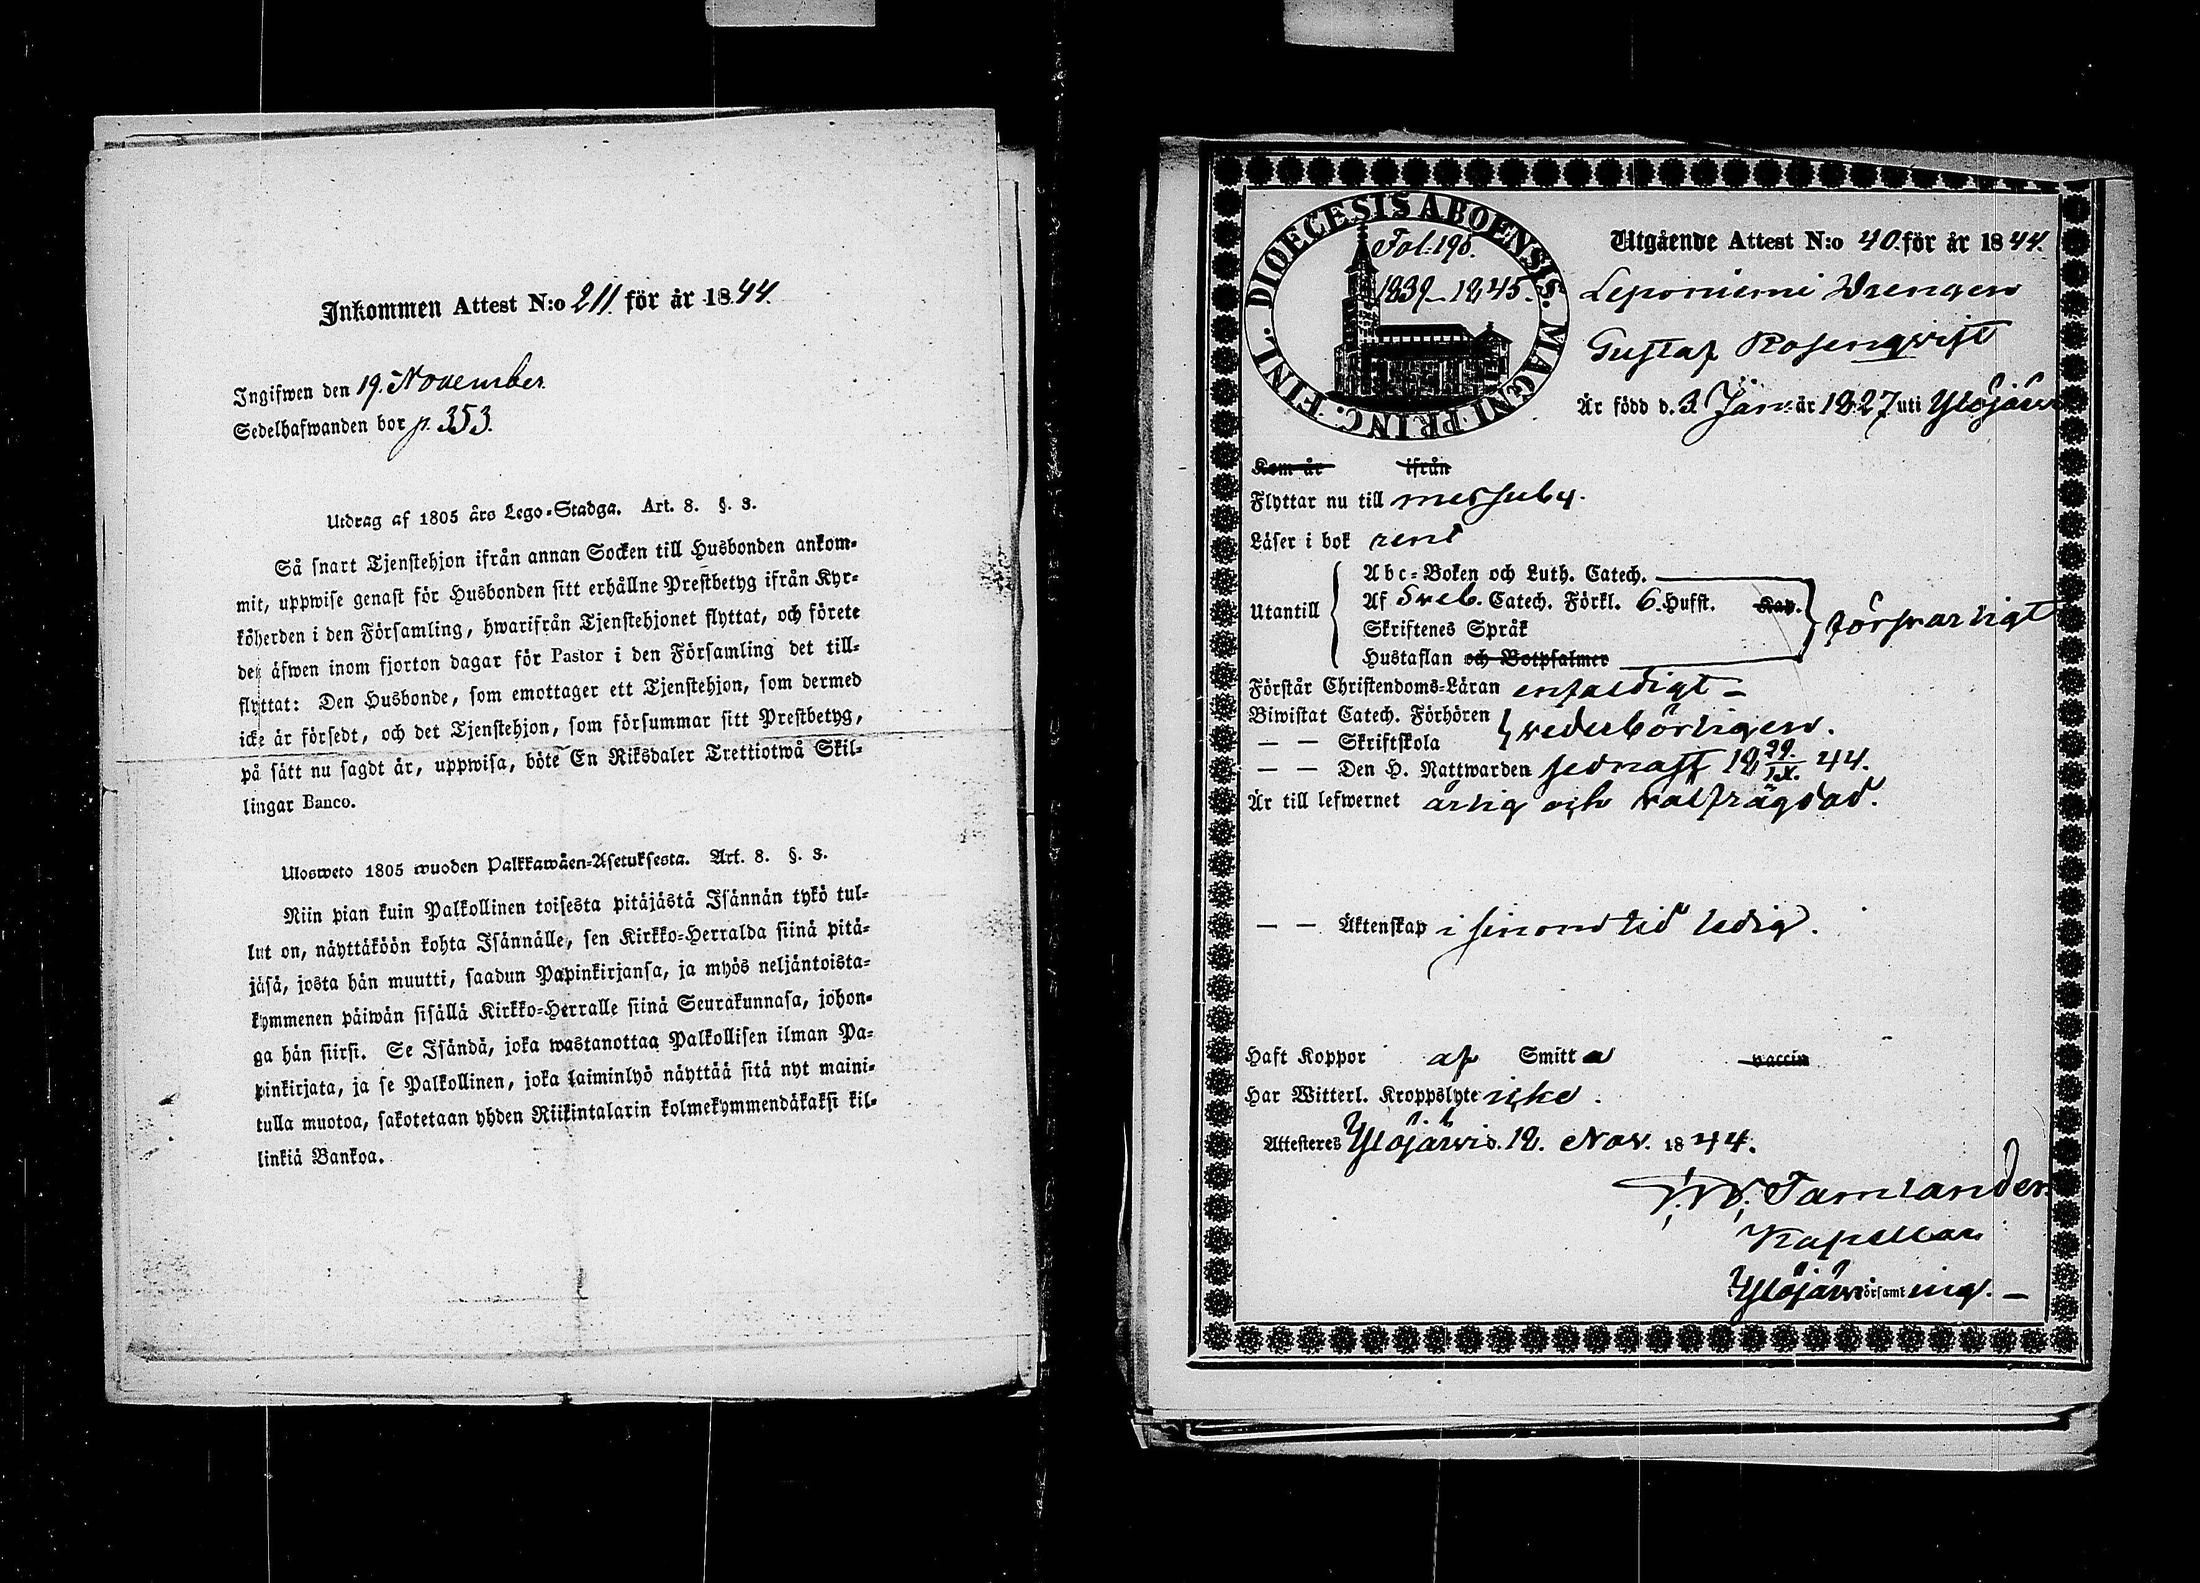 Inkommen Attest N:o 211. för år 1844.
Ingifwen den 19. November
Sedelhafwanden bor p. 353.
Utdrag af 1805 års Lego-Stadga. Art. 8. §. 3.
Så snart Tjenstehjon ifrån annan Socken till Husbonden ankom-
mit, uppwise genast för Husbonden sitt erhållne Prestbetyg ifrån Kyr-
koherden i den Församling, hwarifrån Tjenstehjonet flyttat, och förete
det äfwen inom fjorton dagar för Pastor i den Församling det till-
flyttat: Den Husbonde, som emottager ett Tjenstehjon, som dermed
icke är försedt, och det Tjenstehjon, som försummar sitt Prestbetyg,
på sätt nu sagdt är, uppwisa, böte En Riksdaler Trettiotwå Skil-
lingar Banco.
Ulosweto 1805 wuoden Palkkawäen-Asetuksesta. Art. 8. §. 3.
Niin pian kuin Palkollinen toisesta pitäjästä Isännän tykö tul-
lut on, näyttäköön kohta Isännälle, sen Kirkko-Herralda siinä pitä-
jäsä, josta hän muutti, saadun Papinkirjansa, ja myös neljäntoista-
kymmenen päiwän sisällä Kirkko-Herralle siinä Seurakunnasa, johon-
ga hän siirsi. Se Isändä, joka wastanottaa Palkollisen ilman Pa-
pinkirjata, ja se Palkollinen, joka laiminlyö näyttää sitä nyt maini-
tulla muotoa, sakotetaan yhden Riikintalarin kolmekymmendäkaksi kil-
linkiä Bankoa.
DIOECESIS ABOENSIS. MAGNI PRINC. FINL.
Fol. 195.
1839-1845.
Utgående Attest N:o 40. för år 1844.
Leponiemi Drengen
Gustaf Rosenqvist
Är född d. 3. Jan. år 1827 uti Ylöjärvi
Kom år ifrån
Flyttar nu till Messuby.
Läser i bok rent
Abc-Boken och Luth. Catech.
Utantill Af Sveb. Catech. Förkl. 6. Hufst. Kap. försvarligt
Skriftenes Språk
Hustaflan och Botpsalmer
Förstår Christendoms-Läran enfaldigt -
Biwistat Catech. Förhören vederbörligen.
— — Skriftskola
— — Den H. Nattwarden sednast 18 29/IX. 44.
Är till lefwernet ärlig och välfrägdad.
— — Äktenskap i sinom tid ledig.
Haft Koppor af Smitta vaccin
Har Witterl. Kroppslyte icke.
Attesteres Ylöjärvi d. 12. Nov. 1844.
Tamlander.
Kapellan
Ylöjärvi församling. -